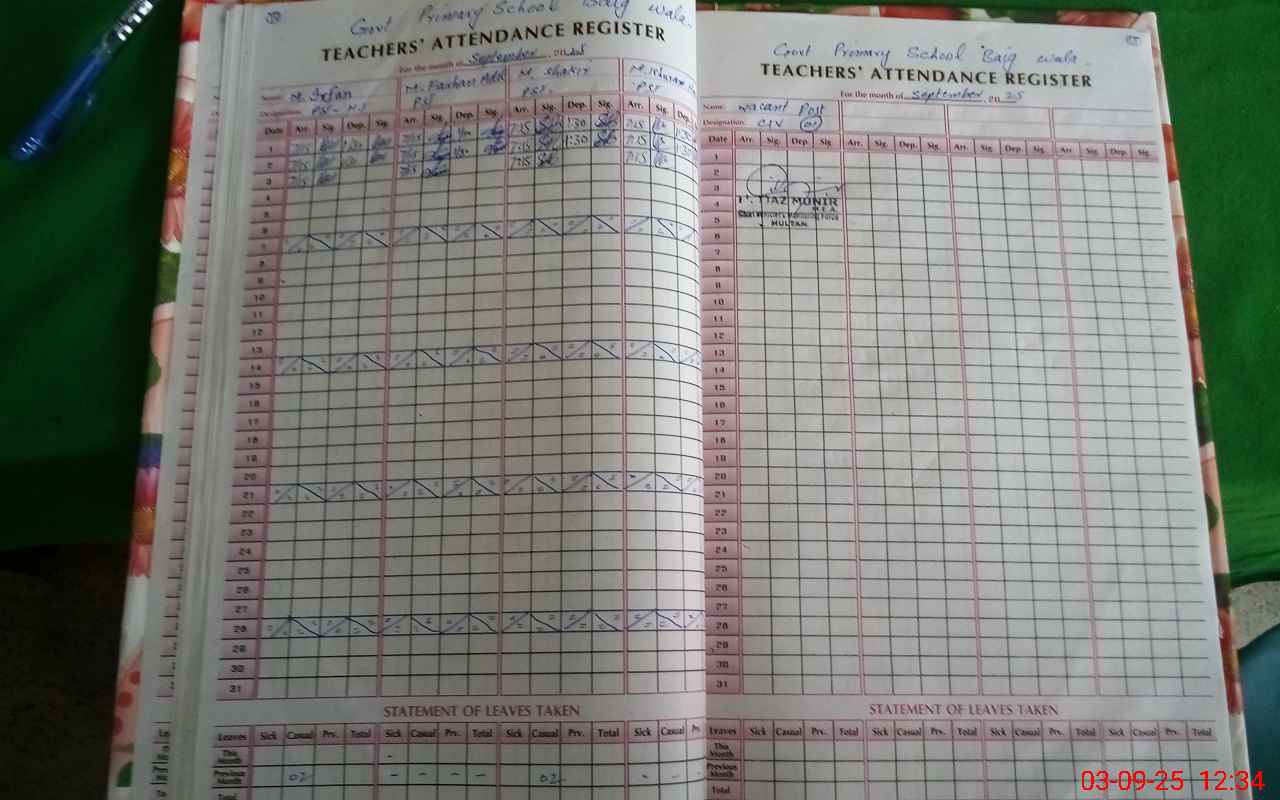 Govt Primary School Baig wala.
TEACHERS' ATTENDANCE REGISTER
For the month of September 2025
Name: M. Irfan M. Farhan M. Shakir
Designation: PST PST PST. PST
Date Arr. Sig. Dep. Sig. Arr. Sig. Dep. Sig. Arr. Sig. Dep. Sig. Arr. Sig. Dep.
1 7:15 1:30 7:15 1:30 7:15 1:30 7:15 1:30
2 7:15 1:30 7:15 1:30 7:15 1:30 7:15 1:30
3 7:15 7:15 7:15 7:15
4
5
6
7
8
9
10
11
12
13
14
15
16
17
18
19
20
21
22
23
24
25
26
27
28
29
30
31
STATEMENT OF LEAVES TAKEN
Leaves Sick Casual Prv. Total Sick Casual Prv. Total Sick Casual Prv. Total Sick Casual
This Month -
Previous Month 02 - - - - 02 - -
Total
Govt Primary School Baig wala.
TEACHERS' ATTENDANCE REGISTER
For the month of September 2025
Name: vacant Post
Designation: C-IV
Date Arr. Sig. Dep. Sig. Arr. Sig. Dep. Sig. Arr. Sig. Dep. Sig. Arr. Sig. Dep. Sig.
1
2
3
4
5
6
7
8
9
10
11
12
13
14
15
16
17
18
19
20
21
22
23
24
25
26
27
28
29
30
31
MUNIR
M.E.A.
Chief Minister's Monitoring Force
MULTAN
STATEMENT OF LEAVES TAKEN
Leaves Sick Casual Prv. Total Sick Casual Prv. Total Sick Casual Prv. Total Sick Casual Prv. Total
This Month
Previous Month
Total
03-09-25 12:34